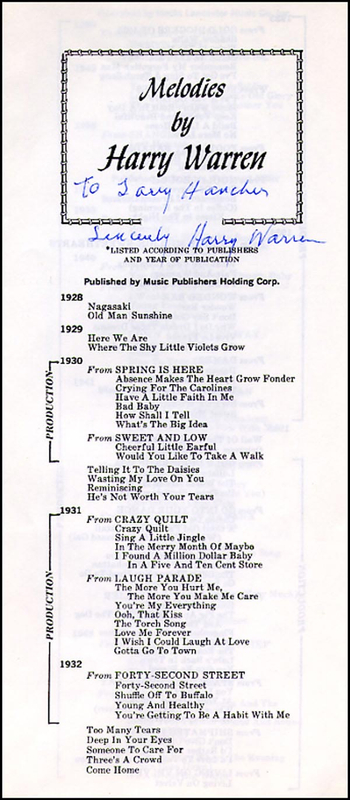 Melodies
by
Harry Warren
To Larry Hancher
Sincerely Harry Warren
*LISTED ACCORDING TO PUBLISHERS
AND YEAR OF PUBLICATION
Published by Music Publishers Holding Corp.
1928
Nagasaki
Old Man Sunshine
1929
Here We Are
Where The Shy Little Violets Grow
1930
PRODUCTION
From SPRING IS HERE
Absence Makes The Heart Grow Fonder
Crying For The Carolines
Have A Little Faith In Me
Bad Baby
How Shall I Tell
What's The Big Idea
From SWEET AND LOW
Cheerful Little Earful
Would You Like To Take A Walk
Telling It To The Daisies
Wasting My Love On You
Reminiscing
He's Not Worth Your Tears
1931
PRODUCTION
From CRAZY QUILT
Crazy Quilt
Sing A Little Jingle
In The Merry Month Of Maybe
I Found A Million Dollar Baby
In A Five And Ten Cent Store
From LAUGH PARADE
The More You Hurt Me,
The More You Make Me Care
You're My Everything
Ooh, That Kiss
The Torch Song
Love Me Forever
I Wish I Could Laugh At Love
Gotta Go To Town
1932
From FORTY-SECOND STREET
Forty-Second Street
Shuffle Off To Buffalo
Young And Healthy
You're Getting To Be A Habit With Me
Too Many Tears
Deep In Your Eyes
Someone To Care For
Three's A Crowd
Come Home